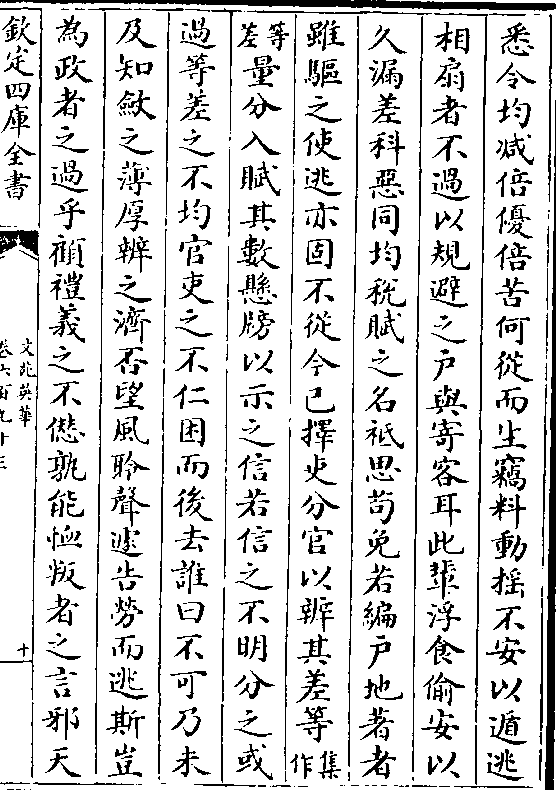 悉令均减倍優倍苦何從而生竊料動揺不安以遁逃
相扇者不過以規避之戶與寄客耳此輩浮食偷安以
久漏差科惡同均稅賦之名祗思苟免若編戶地著者
雖驅之使逃亦固不從今已擇吏分官以辨其差等集作
等差量分入賦其數懸牓以示之信若信之不明分之或
過等差之不均官吏之不仁困而後去誰曰不可乃未
及知斂之薄厚辨之濟否望風聆聲遽告勞而逃斯豈
為政者之過乎顧禮義之不愆孰能恤叛者之言邪天
欽定四庫全書
文苑英華
卷六百九十三
十